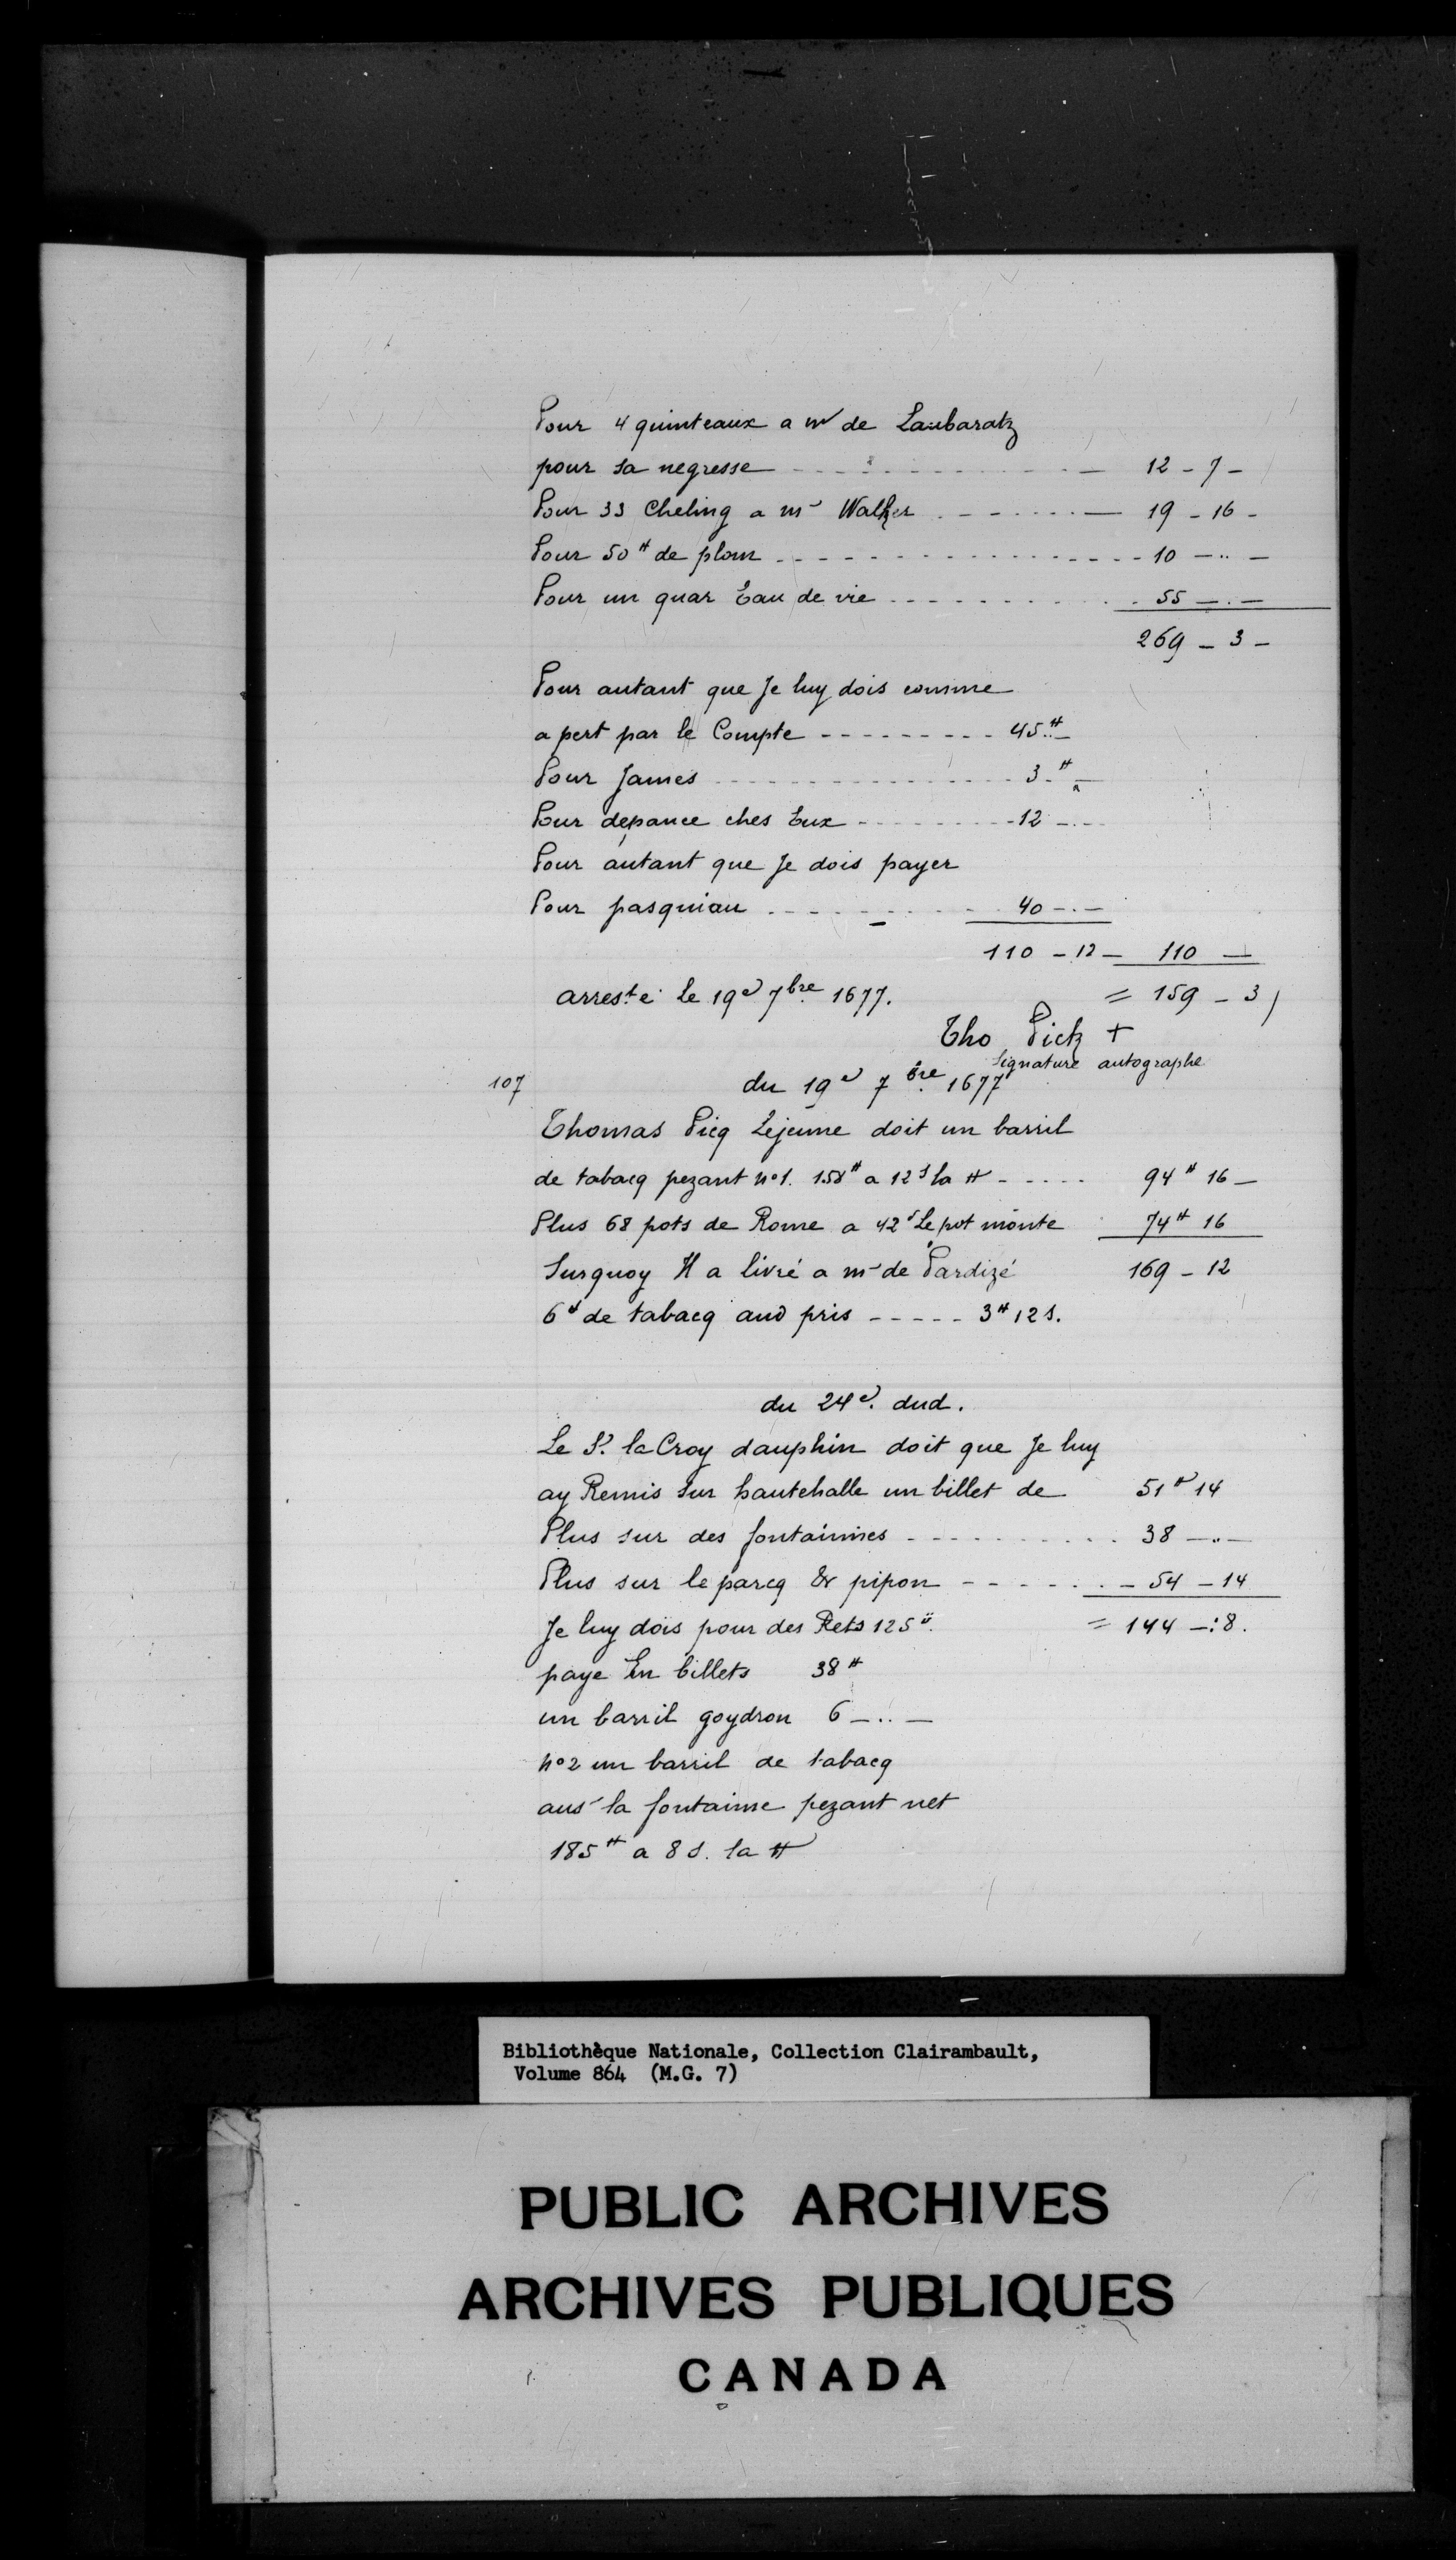 Pour 4 quinteaux a mr de Laubaratz
pour sa negresse - - - - - - - 12 - 7 -
Pour 33 Cheling a mr Walker - - - - - - 19 - 16 -
Pour 50 # de plom - - - - - - - - - 10 - .. -
Pour un quar Eau de vie - - - - - - - 55 - . -
269 - 3 -
Pour autant que Je luy dois comme
a pert par le Compte - - - - - - - - 45 #
Pour James - - - - - - - - 3 #
Pour depance ches Eux - - - - - - - 12 - . -
Pour autant que Je dois payer
Pour pasquiau - - - - - - - 40 - . -
110 - 12 - 110 -
arresté le 19e 7bre 1677. = 159 - 3
Tho Pick +
Signature autographe
107 du 19e 7bre 1677
Thomas Picq Lejeune doit un barril
de tabacq pezant no1. 158 # a 12 s la # - - - - - 94 # 16 -
Plus 68 pots de Rome a 42 s Le pot monte 74 # 16
Surquoy Il a livré a mr de Pardizé 169 - 12
6 # de tabacq aud pris - - - - - 3 # 12 s.
du 24e. dud.
Le Sr. la Croy dauphin doit que Je luy
ay Remis sur hautehalle un billet de 51 # 14
Plus sur des fontainnes - - - - - - - - 38 - .. -
Plus sur le parcq & pipon - - - - - - - 54 - 14
Je luy dois pour des Rets 125 # = 144 - : 8.
paye En billets 38 #
un barril goydron 6 - .. -
no2 un barril de tabacq
aus la fontainne pezant net
185 # a 8 s. la #
Bibliothèque Nationale, Collection Clairambault,
Volume 864 (M.G. 7)
PUBLIC ARCHIVES
ARCHIVES PUBLIQUES
CANADA